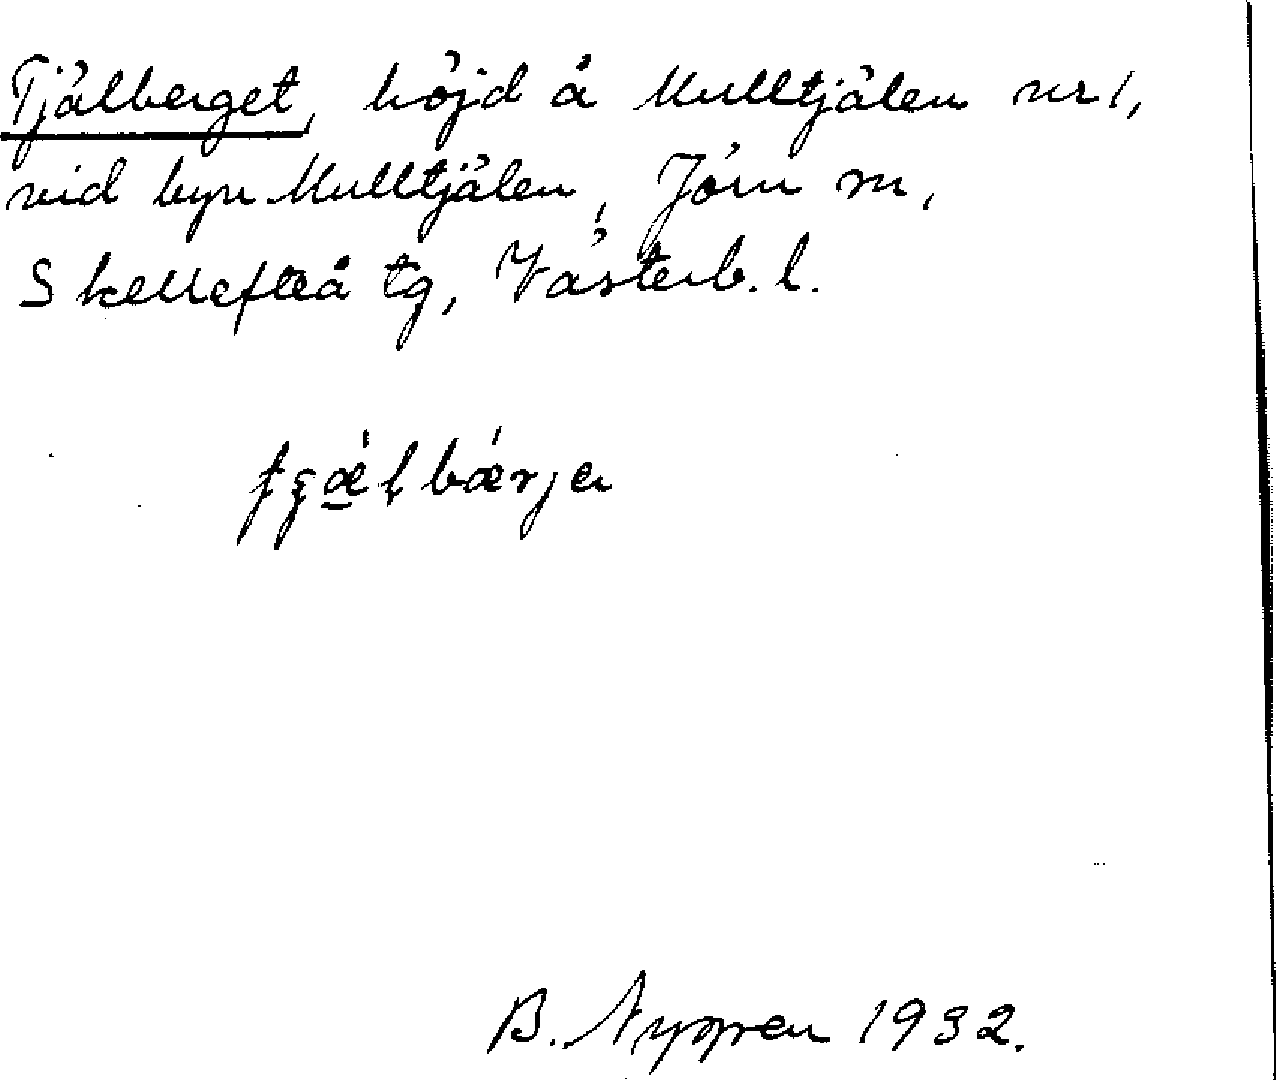 Tjälberget, höjd å Mulltjälen nr 1,
vid byn Mulltjälen, Jörn sn,
Skellefteå tg, Västerb. l.
B. Nygren 1932.